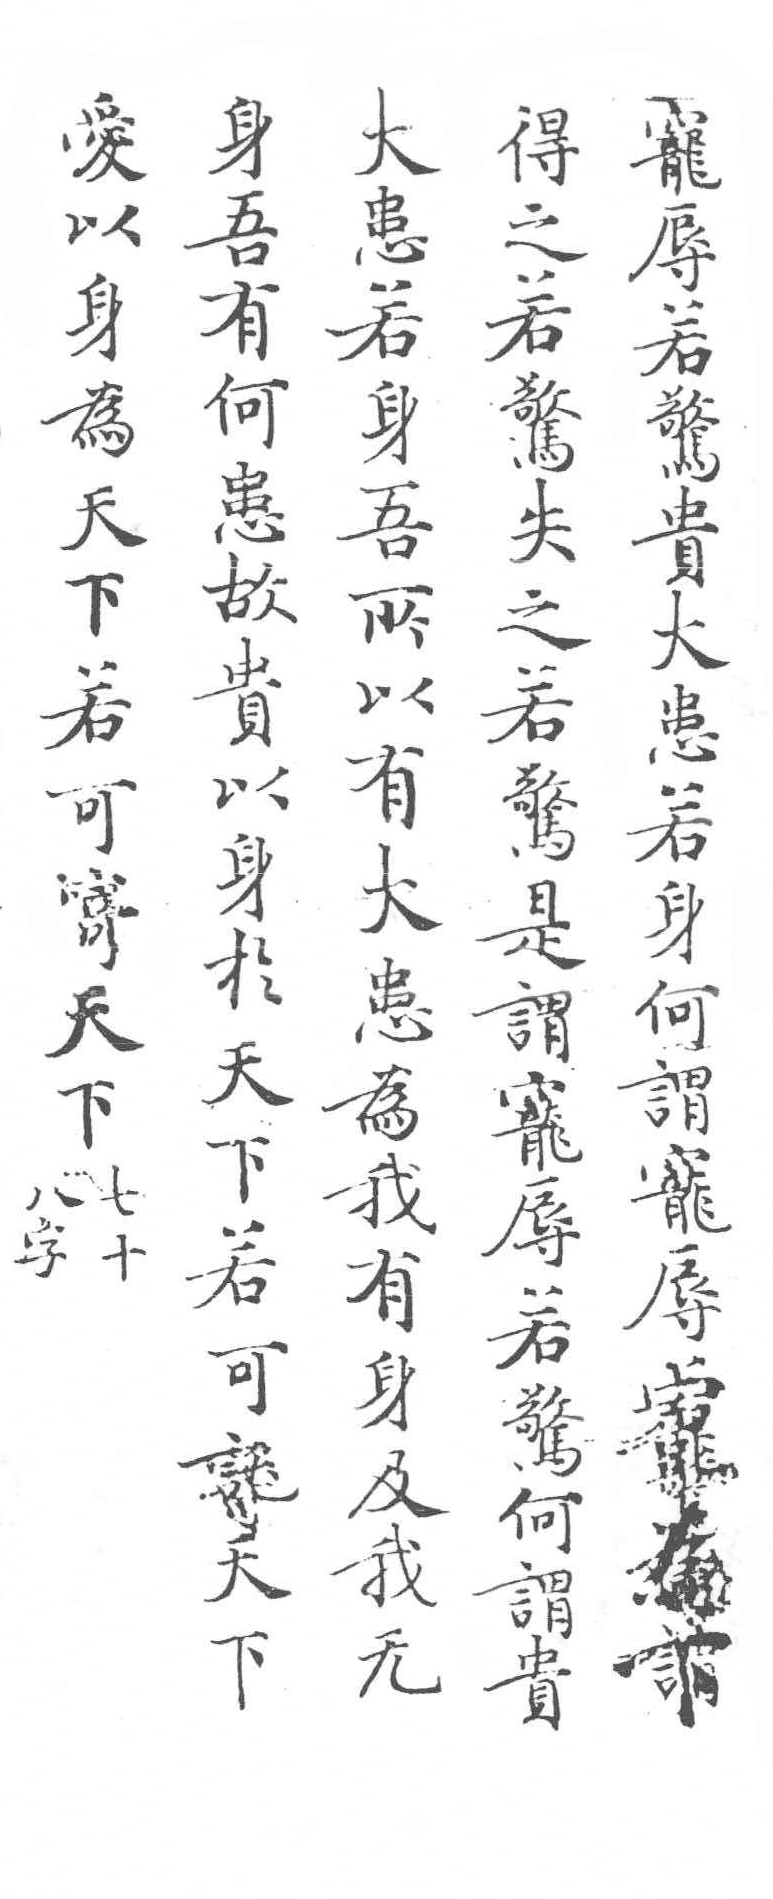 寵辱若驚貴大患若身何謂寵辱
得之若驚失之若驚是謂寵辱若驚何謂貴
大患若身吾所以有大患為我有身及我无
身吾有何患故貴以身於天下若可託天下
愛以身為天下若可寄天下
七十
八字